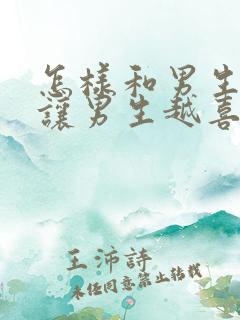 怎樣和男生
讓男生越喜
王沛詩
未經同意禁止轉載